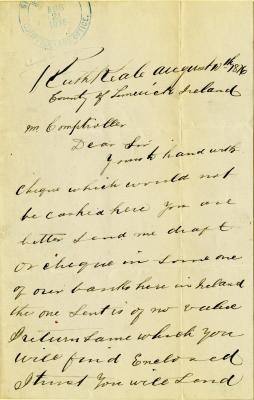 AUG
1876
Rathkeale August 10th 1876
County of Limerick Ireland
Mr Comptroller
Dear Sir
Yours to hand with
Cheque which would not
be cashed here You are
better Send me draft
or Cheque in Some one
of our banks here in Ireland
the one Sent is of no value
I return Same which you
will find Enclosed
I trust You will Send